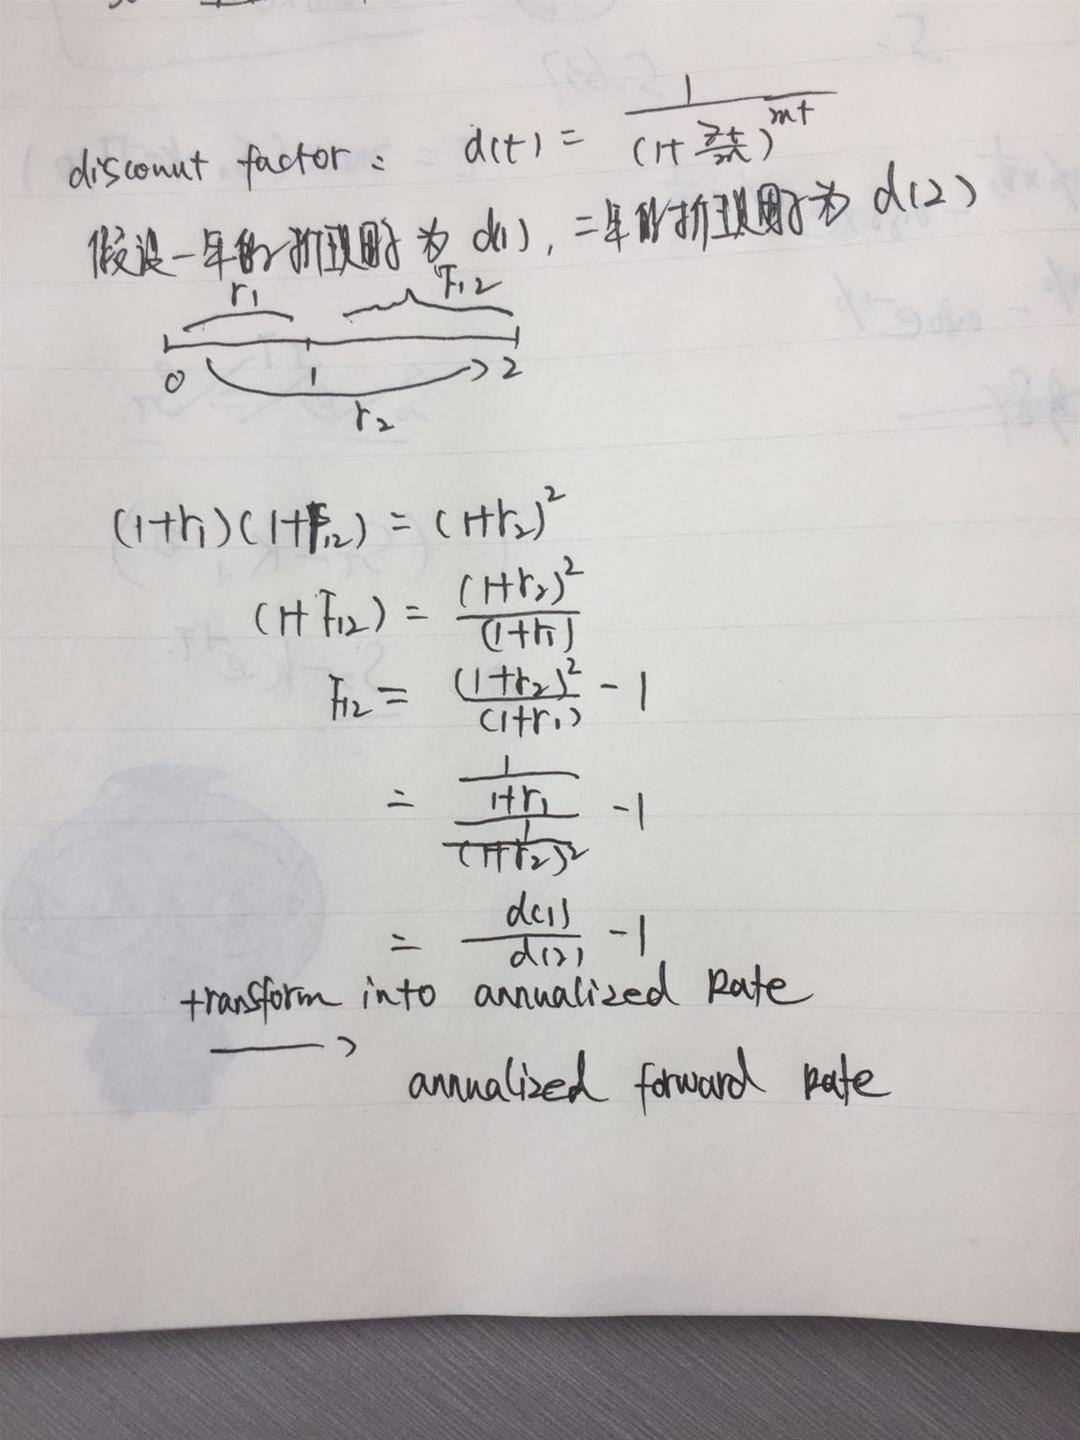 disconut factor: d(t) = 1 / (1+ zt/m)^mt
假设一年的折现因子为 d(1), 二年的折现因子为 d(2)
r1 F12
0 1 2
r2
(1+r1)(1+F12) = (1+r2)^2
(1+F12) = (1+r2)^2 / (1+r1)
F12 = (1+r2)^2 / (1+r1) - 1
= (1 / 1+r1) / (1 / (1+r2)^2) - 1
= d(1) / d(2) - 1
transform into annualized Rate
→ annualized forward Rate